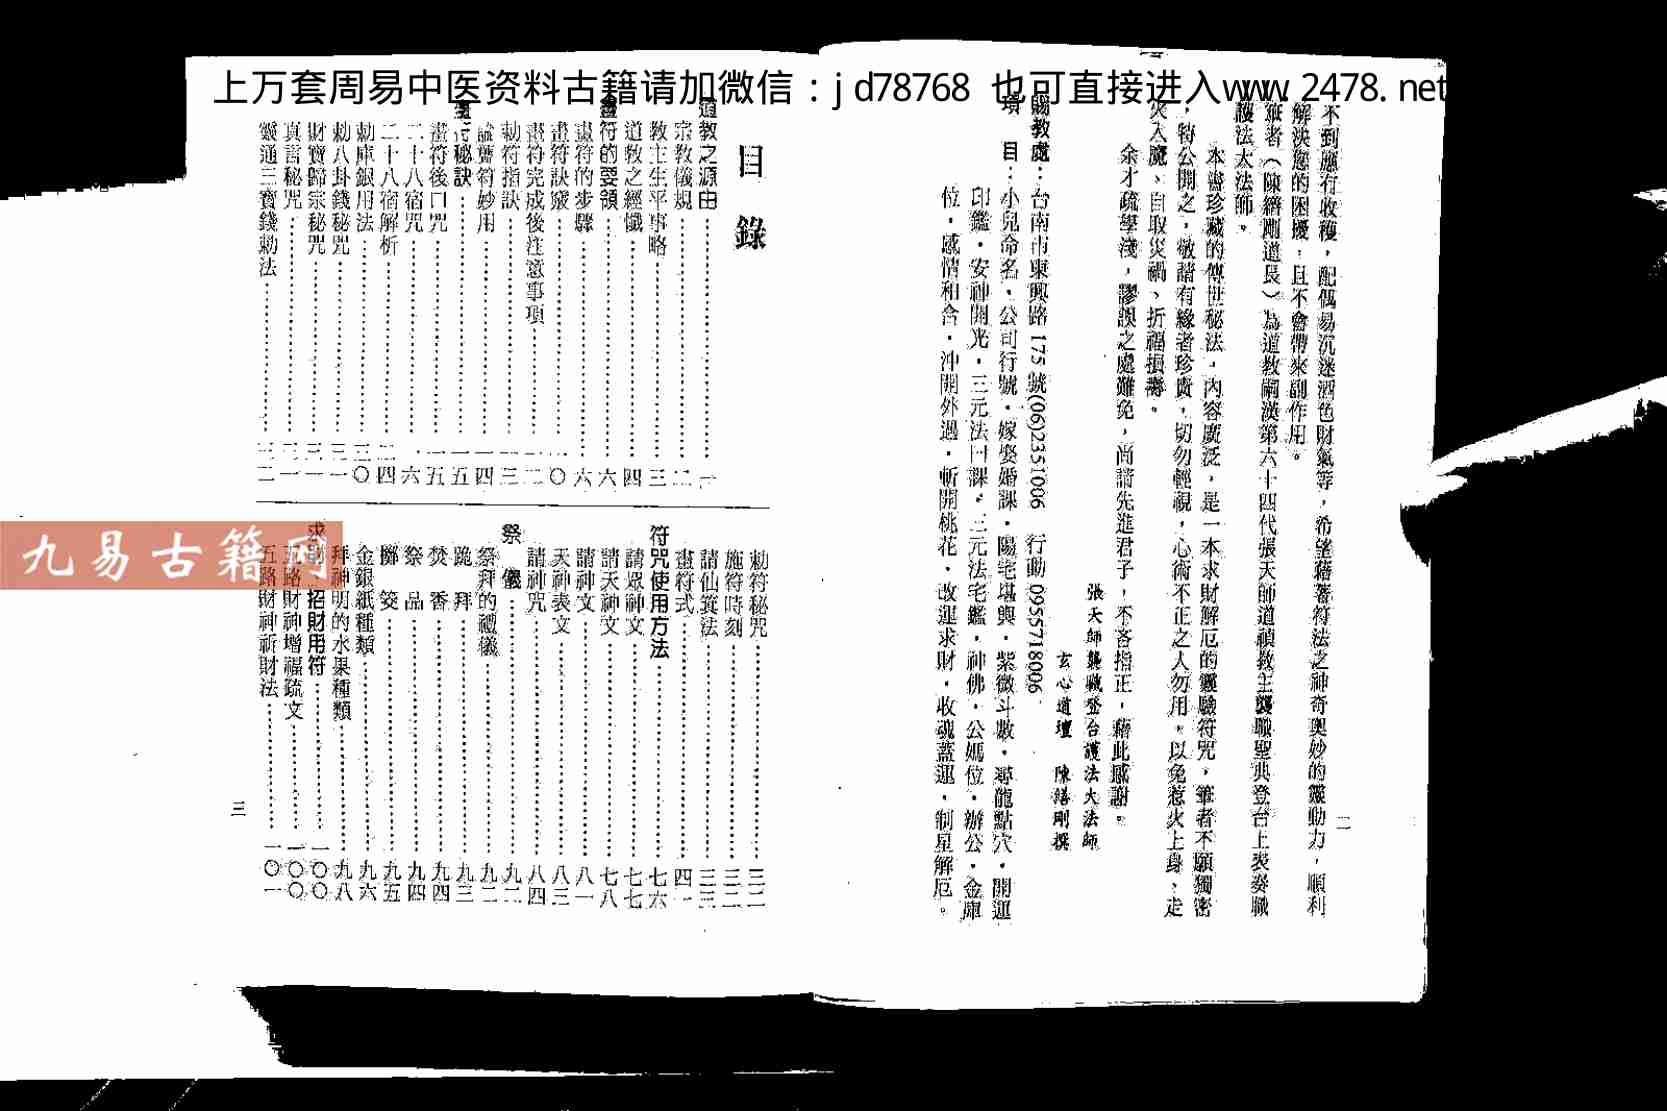 上万套周易中医资料古籍请加微信：jd78768 也可直接进入www.2478.net
不到應有收穫，配偶易沉迷酒色財氣等，希望藉著符法之神奇奧妙的靈動力，順利
解決您的困擾，且不會帶來副作用。
筆者（陳繕剛道長）為道教嗣漢第六十四代張天師道禎教主襲職聖典登台上表奏職
護法大法師。
本書珍藏的傳世秘法，內容廣泛，是一本求財解厄的靈驗符咒，筆者不願獨密
，特公開之，敬請有緣者珍貴，切勿輕視，心術不正之人勿用，以免惹火上身、走
火入魔、自取災禍、折福損壽。
余才疏學淺，謬誤之處難免，尚請先進君子，不吝指正，藉此感謝。
張天師襲職登台護法大法師
玄心道壇　陳繕剛撰
賜教處：台南市東興路175號(06)2351006　行動0955718006
項　目：小兒命名．公司行號．嫁娶婚課．陽宅堪輿．紫微斗數．尋龍點穴．開運
印鑑．安神開光．三元法日課．三元法宅鑑．神佛．公媽位．辦公．金庫
位．感情和合．沖開外遇．斬開桃花．改運求財．收魂蓋運．制星解厄。
二
目錄
道教之源由……一
宗教儀規……二
教主生平事略……三
道教之經懺……四
畫符的要領……六
畫符的步驟……六
畫符訣竅……一〇
畫符完成後注意事項……一二
勅符指訣……一三
論靈符妙用……一四
畫符秘訣……一五
畫符後口咒……一五
二十八宿咒……一六
二十八宿解析……二四
勅庫銀用法……三〇
勅八卦錢秘咒……三一
財寶歸宗秘咒……三一
真言秘咒……三一
靈通三寶錢勅法……三二
勅符秘咒……三二
施符時刻……三二
請仙箕法……三三
畫符式……四一
符咒使用方法……七六
請眾神文……七七
請天神文……七八
請神文……八一
天神表文……八三
請神咒……八四
祭　儀……九二
祭拜的禮儀……九二
跪　拜……九三
焚　香……九四
祭　品……九四
擲　筊……九五
金銀紙種類……九六
拜神明的水果種類……九八
求財、招財用符……一〇〇
五路財神增福疏文……一〇〇
五路財神祈財法……一〇一
三
九易古籍网